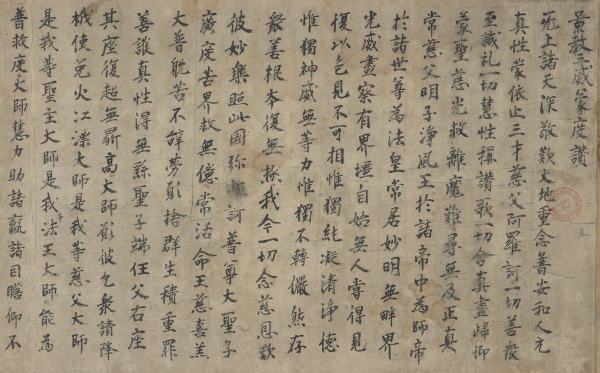 景教三威蒙度讚
无上諸天深敬歎大地重念普安和人元
真性蒙依止三才慈父阿羅訶一切善衆
至誠礼一切慧性稱讚歌一切含真盡歸仰
蒙聖慈光救離魔難尋無及正真
常慈父明子淨風王於諸帝中為師帝
於諸世尊為法皇常居妙明無畔界
光威盡察有界疆自始無人嘗得見
復以色見不可相惟獨純凝清淨德
惟獨神威無等力惟獨不轉儼然存
衆善根本復無極我今一切念慈恩歎
彼妙樂照此國弥訶普尊大聖子
廣度苦界救無億常活命王慈喜羔
大普躭苦不辭勞願捨群生積重罪
善護真性得無繇聖子端任父右座
其座復超無鼎高大師願彼乞衆請降
栰使免火江漂大師是我等慈父大師
是我等聖主大師是我法王大師能為
普救度大師慧力助諸羸諸目瞻仰不